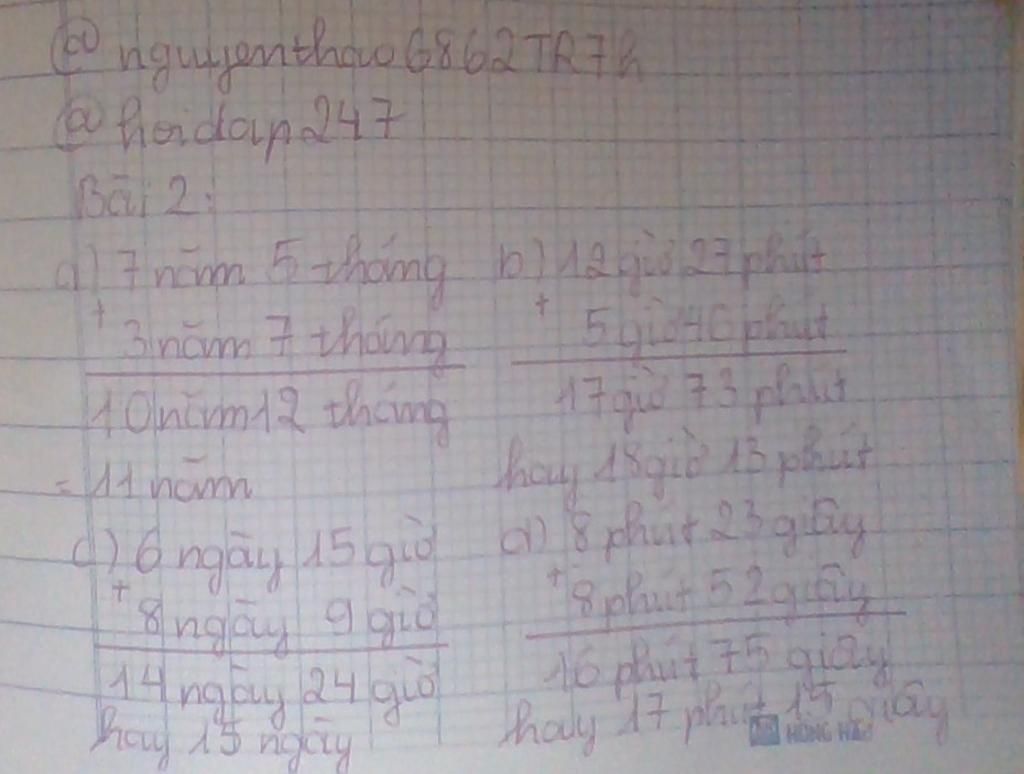 @ nguyenthao6862TR7h
@ hoidap247
Bài 2:
a) 7 năm 5 tháng
+ 3 năm 7 tháng
10 năm 12 tháng
= 11 năm
b) 12 giờ 27 phút
+ 5 giờ 46 phút
17 giờ 73 phút
hay 18 giờ 13 phút
c) 6 ngày 15 giờ
+ 8 ngày 9 giờ
14 ngày 24 giờ
hay 15 ngày
d) 8 phút 23 giây
+ 8 phút 52 giây
16 phút 75 giây
hay 17 phút 15 giây
HONG HA